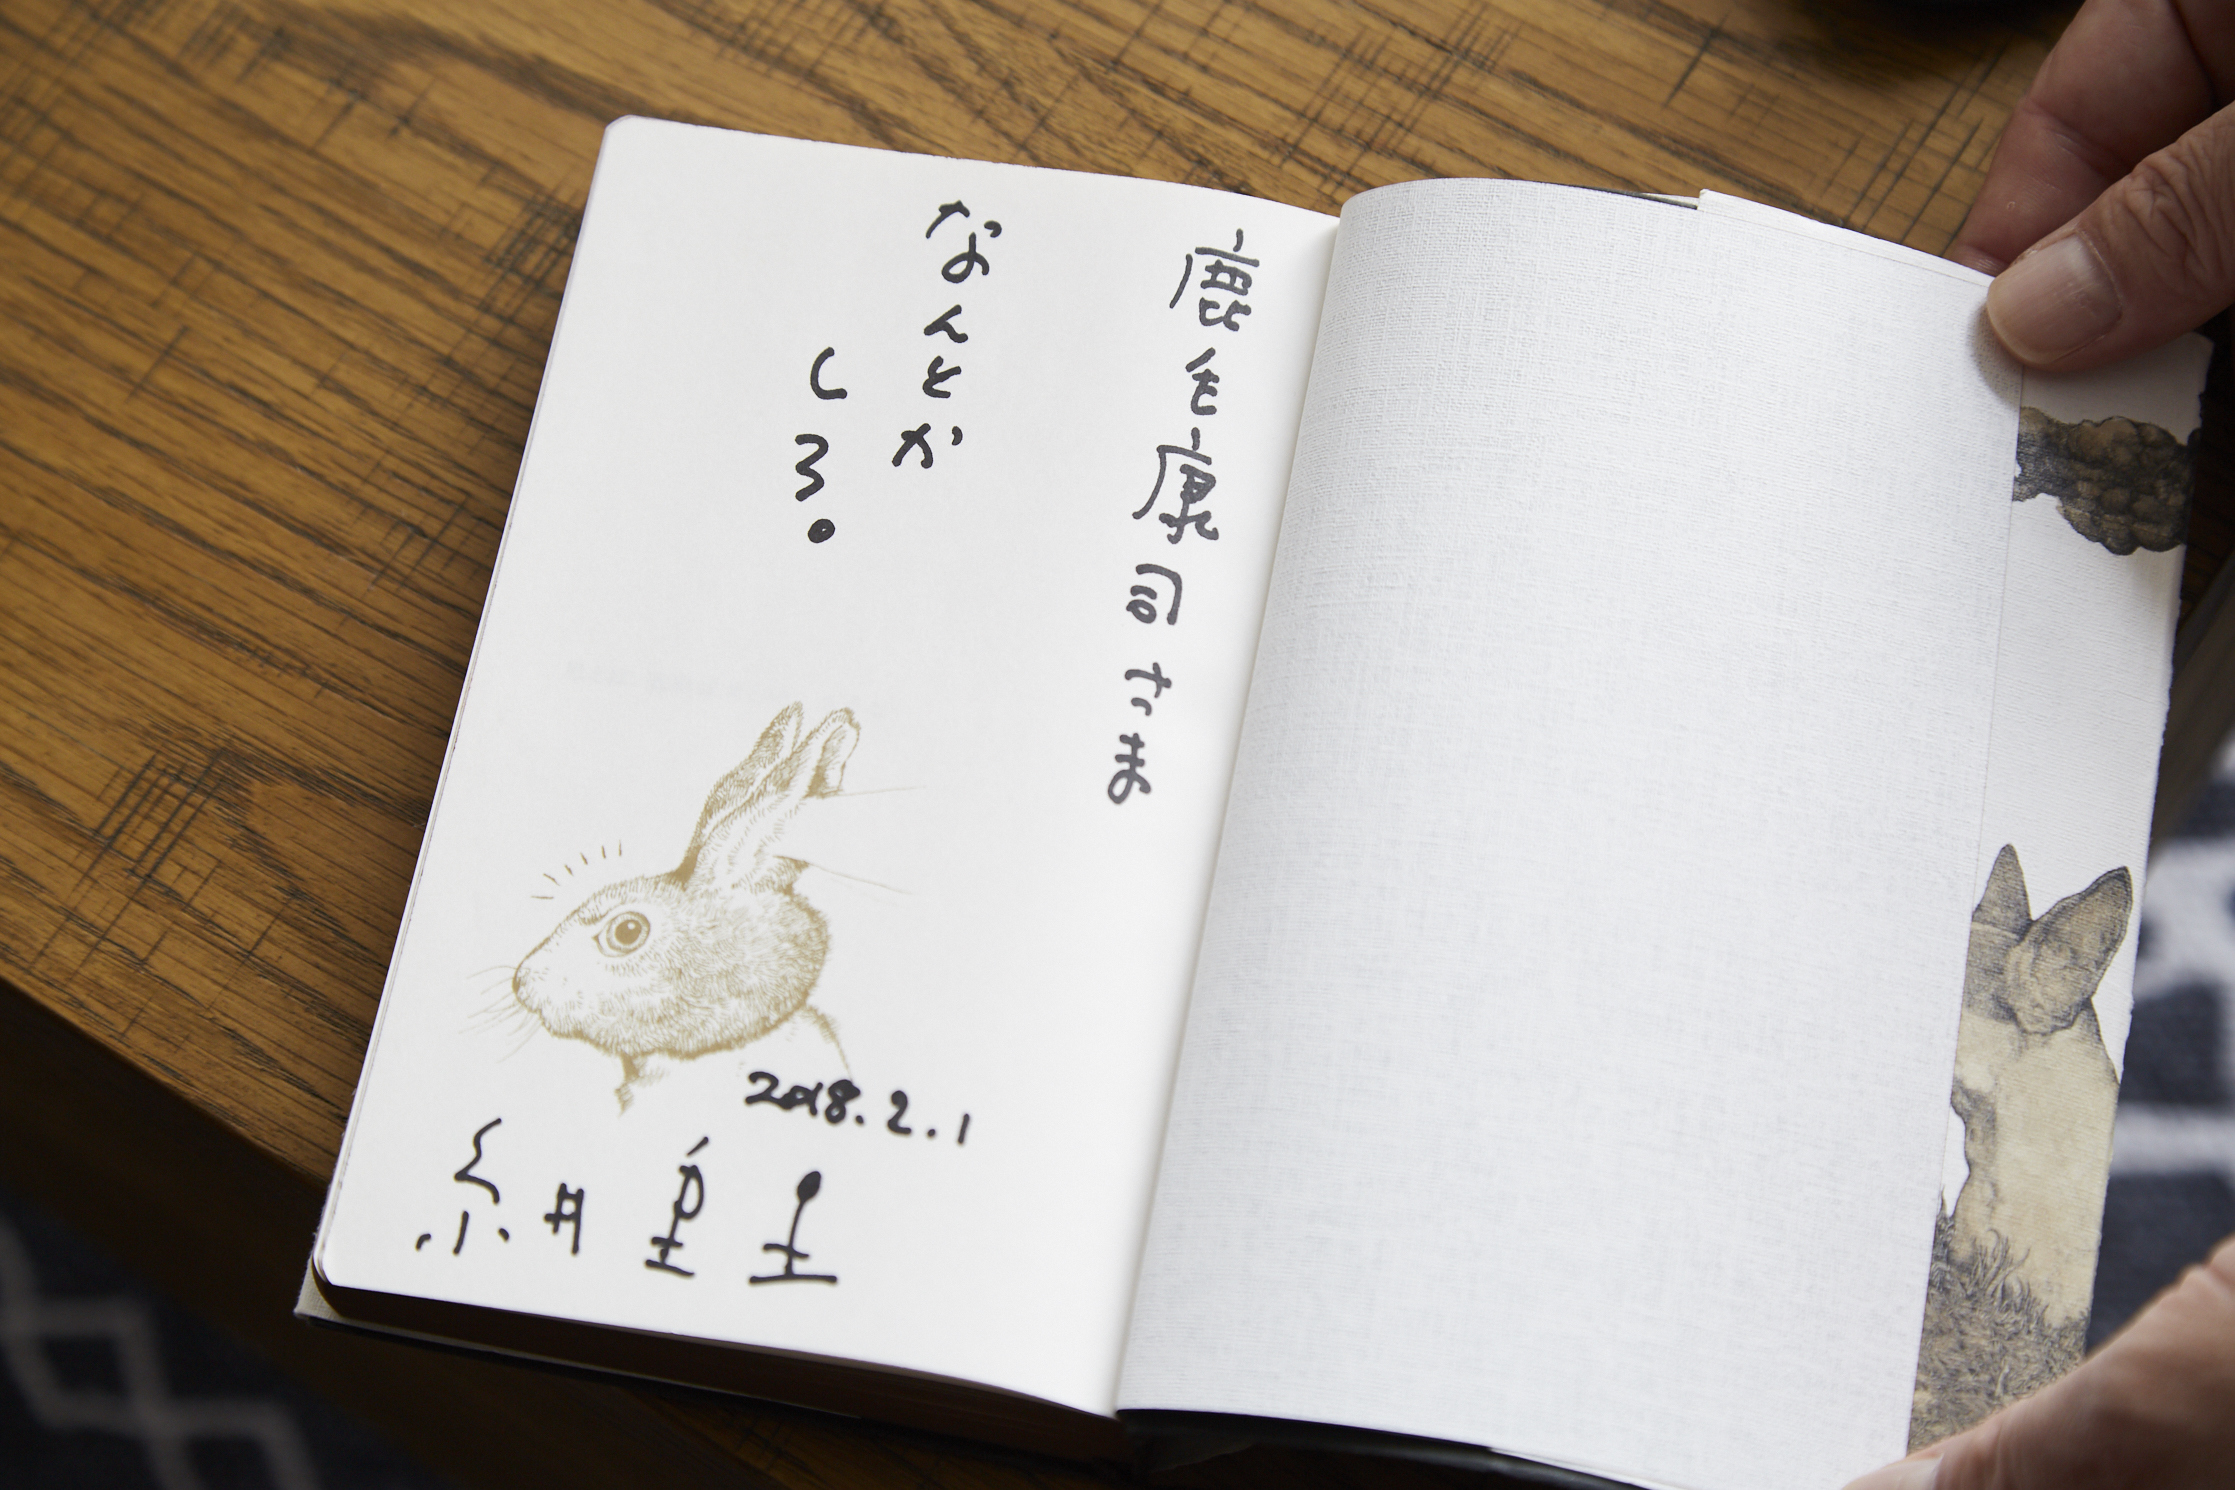 鹿毛康司さま
なんとか
しろ。
2018.2.1
糸井重里